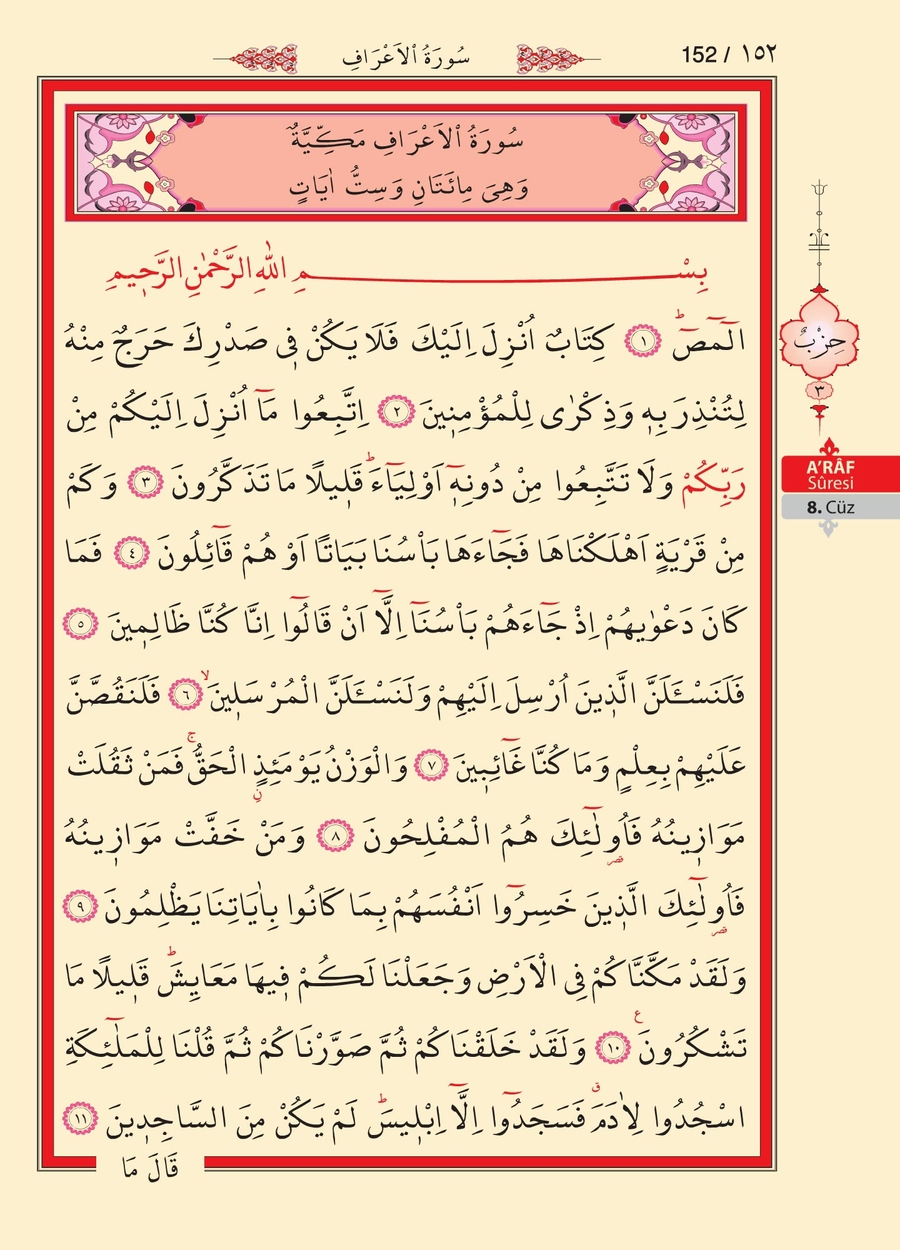 سُورَةُ الْاَعْرَافِ
152 / ١٥٢
سُورَةُ الْاَعْرَافِ مَكِّيَّةٌ
وَهِىَ مِائَتَانِ وَسِتُّ اٰيَاتٍ
بِسْمِ اللّٰهِ الرَّحْمٰنِ الرَّحٖيمِ
الٓمٓصٓ ۜ ﴿١﴾ كِتَابٌ اُنْزِلَ اِلَيْكَ فَلَا يَكُنْ فٖى صَدْرِكَ حَرَجٌ مِنْهُ
لِتُنْذِرَ بِهٖ وَذِكْرٰى لِلْمُؤْمِنٖينَ ﴿٢﴾ اِتَّبِعُوا مَٓا اُنْزِلَ اِلَيْكُمْ مِنْ
رَبِّكُمْ وَلَا تَتَّبِعُوا مِنْ دُونِهٖٓ اَوْلِيَٓاءَ ؕ قَلٖيلًا مَا تَذَكَّرُونَ ﴿٣﴾ وَكَمْ
مِنْ قَرْيَةٍ اَهْلَكْنَاهَا فَجَٓاءَهَا بَاْسُنَا بَيَاتًا اَوْ هُمْ قَٓائِلُونَ ﴿٤﴾ فَمَا
كَانَ دَعْوٰيهُمْ اِذْ جَٓاءَهُمْ بَاْسُنَٓا اِلَّٓا اَنْ قَالُٓوا اِنَّا كُنَّا ظَالِمٖينَ ﴿٥﴾
فَلَنَسْـَٔلَنَّ الَّذٖينَ اُرْسِلَ اِلَيْهِمْ وَلَنَسْـَٔلَنَّ الْمُرْسَلٖينَ ۙ ﴿٦﴾ فَلَنَقُصَّنَّ
عَلَيْهِمْ بِعِلْمٍ وَمَا كُنَّا غَٓائِبٖينَ ﴿٧﴾ وَالْوَزْنُ يَوْمَئِذٍ الْحَقُّ ۚ فَمَنْ ثَقُلَتْ
مَوَازٖينُهُ فَاُو۬لٰٓئِكَ هُمُ الْمُفْلِحُونَ ﴿٨﴾ وَمَنْ خَفَّتْ مَوَازٖينُهُ
فَاُو۬لٰٓئِكَ الَّذٖينَ خَسِرُٓوا اَنْفُسَهُمْ بِمَا كَانُوا بِاٰيَاتِنَا يَظْلِمُونَ ﴿٩﴾
وَلَقَدْ مَكَّنَّاكُمْ فِى الْاَرْضِ وَجَعَلْنَا لَكُمْ فٖيهَا مَعَايِشَ ؕ قَلٖيلًا مَا
تَشْكُرُونَ ع ﴿١٠﴾ وَلَقَدْ خَلَقْنَاكُمْ ثُمَّ صَوَّرْنَاكُمْ ثُمَّ قُلْنَا لِلْمَلٰٓئِكَةِ
اسْجُدُوا لِاٰدَمَ ق فَسَجَدُٓوا اِلَّٓا اِبْلٖيسَ ؕ لَمْ يَكُنْ مِنَ السَّاجِدٖينَ ﴿١١﴾
قَالَ مَا
حِزْبٌ
٣
A'RÂF
Sûresi
8. Cüz